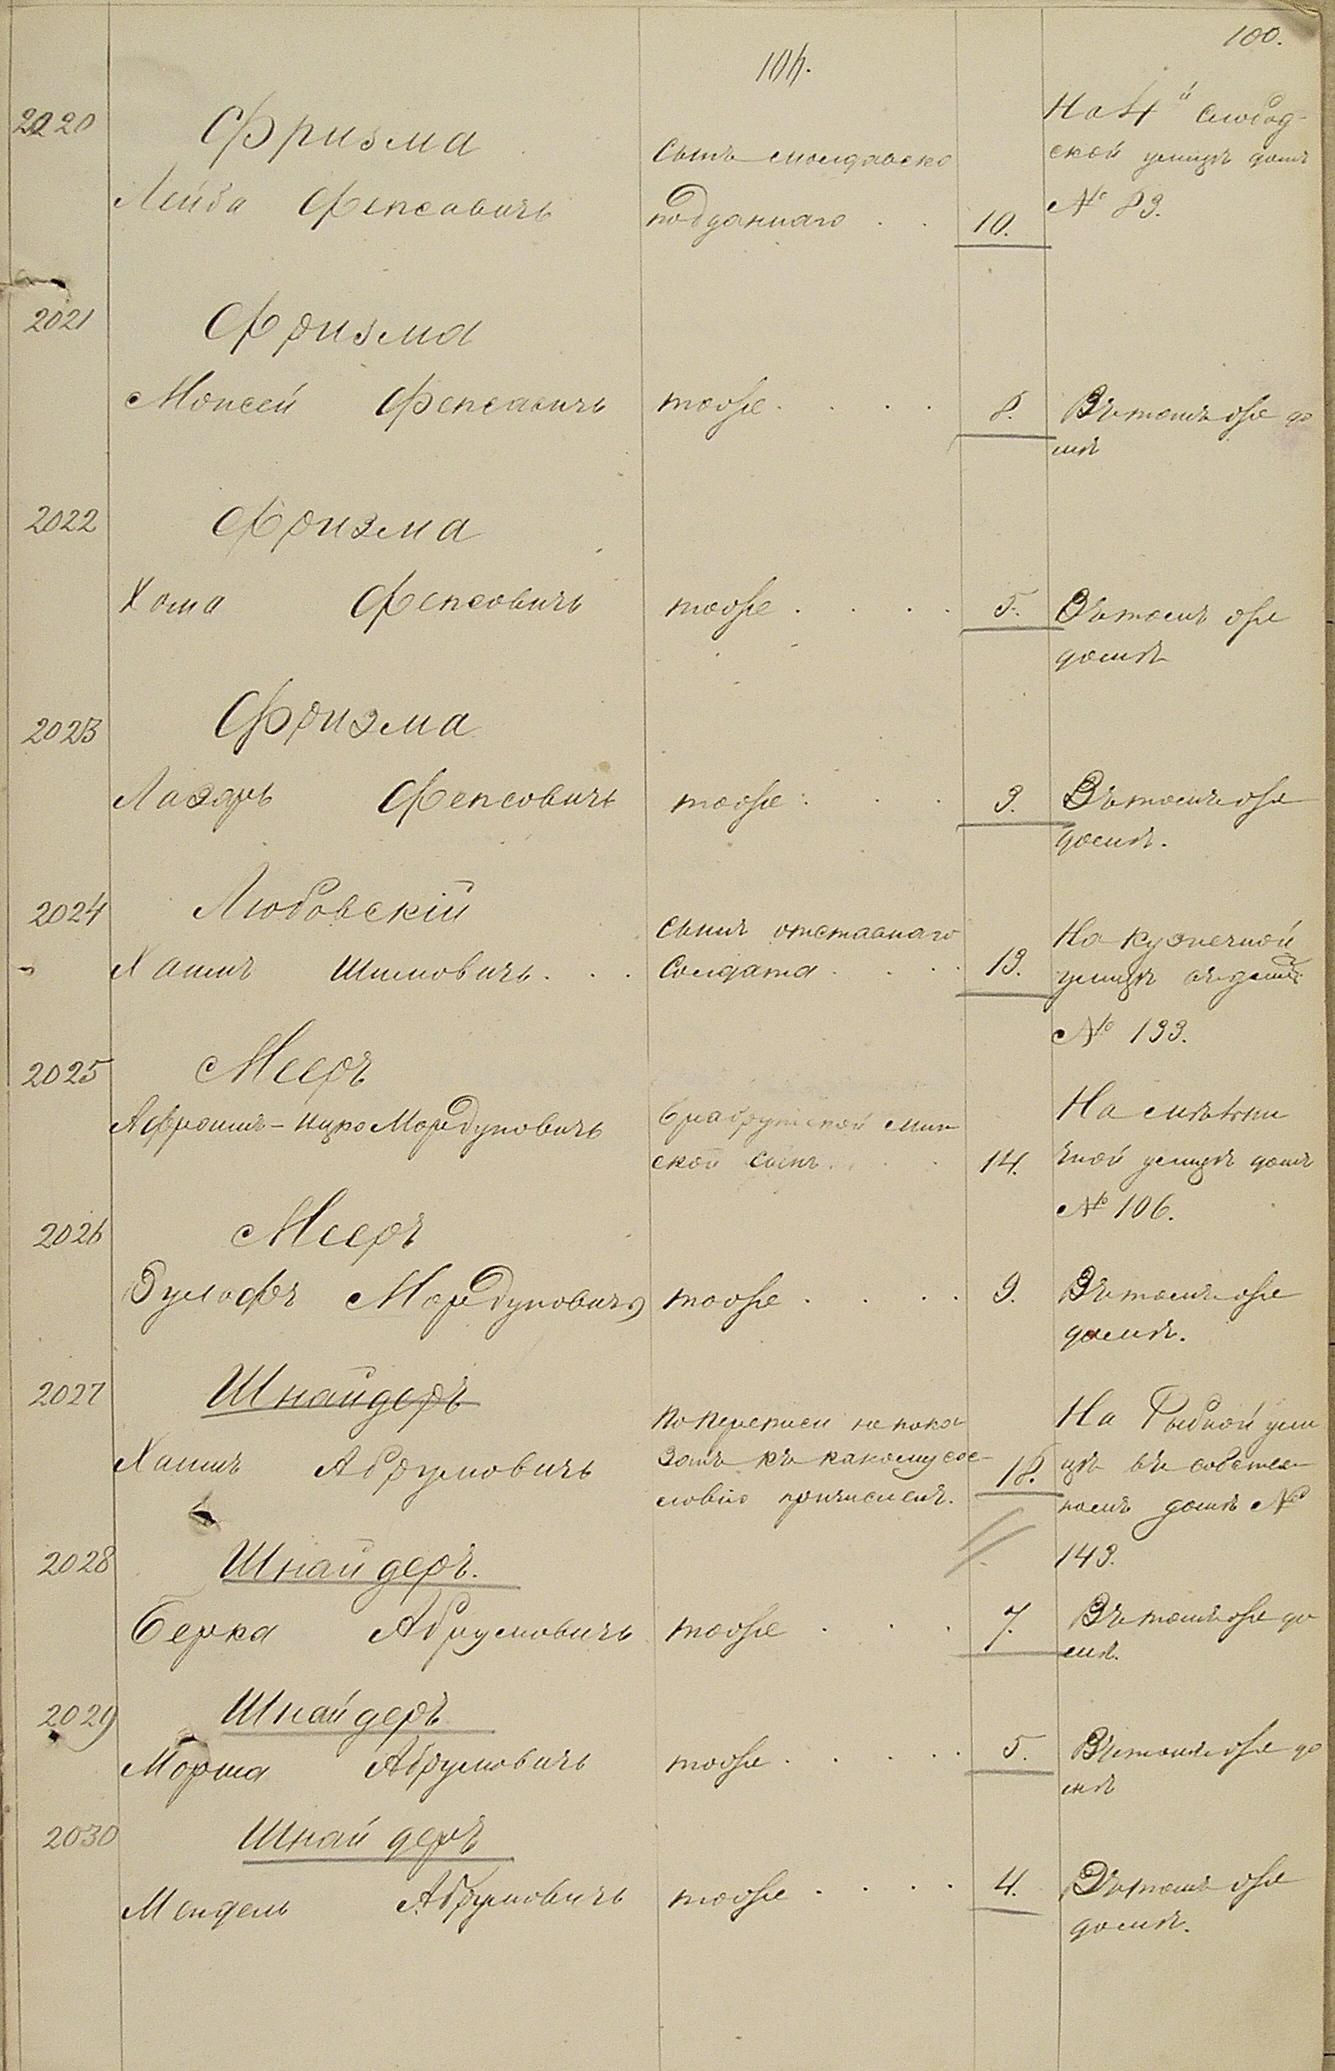 100.
104.
2020
Фризма
Лейба Фепсовичъ
сынъ молдавско
подданнаго . .
10.
На 4й Слобод-
ской улицѣ домъ
№ 83.
2021
Фризма
Моисей Фепсовичъ
тоже . . . .
8.
Въ томъ же до
мѣ
2022
Фризма
Хома Фепсовичъ
тоже . . . .
5.
Въ томъ же
домѣ
2023
Фризма
Лазарь Фепсовичъ
тоже . . .
3.
Въ томъ же
домѣ.
2024
Любовскій
Хаимъ Шимовичъ . . .
Сынъ отставнаго
Солдата . . . .
13.
На Кузнечной
улицѣ въ домѣ
№ 133.
2025
Мееръ
Афроимъ-Ицко Мордуховичъ
ской сынъ . . .
14.
На
чной улицѣ домъ
№ 106.
2026
Мееръ
Мордуховичъ
тоже . . . .
9.
Въ томъ же
домѣ.
2027
Шнайдеръ
Хаимъ Абрумовичъ
По переписи не пока
занъ къ какому сос-
ловію причисленъ.
18.
На Рыбной ули
цѣ въ собствен
номъ домѣ №
143.
2028
Шнайдеръ.
Берка Абрумовичъ
тоже . . .
7.
Въ томъ же до
мѣ.
2029
Шнайдеръ
Морша Абрумовичъ
тоже . . . . .
5.
Въ томъ же до
мѣ
2030
Шнайдеръ
Мендель Абрумовичъ
тоже . . . .
4.
Въ томъ же
домѣ.